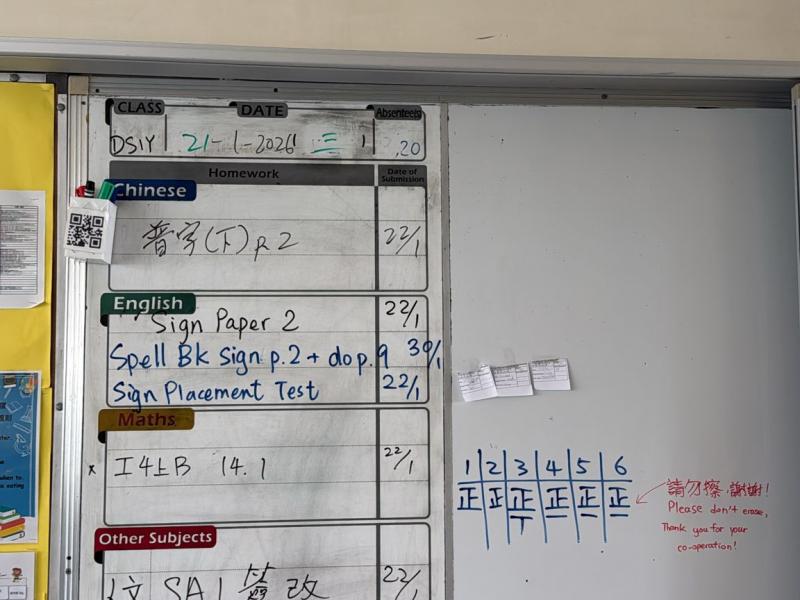 CLASS DATE Absentee(s)
21-1-2026 三 20
Homework Date of Submission
Chinese
(下) p.2 22/1
English
Sign Paper 2 22/1
Spell Bk sign p.2 + do p.9 30/1
Sign Placement Test 22/1
Maths
14.1 22/1
Other Subjects
SA1 簽改 22/1
1 2 3 4 5 6
正 正 正 正 正 正
請勿擦,謝謝!
Please don't erase,
Thank you for your
co-operation!